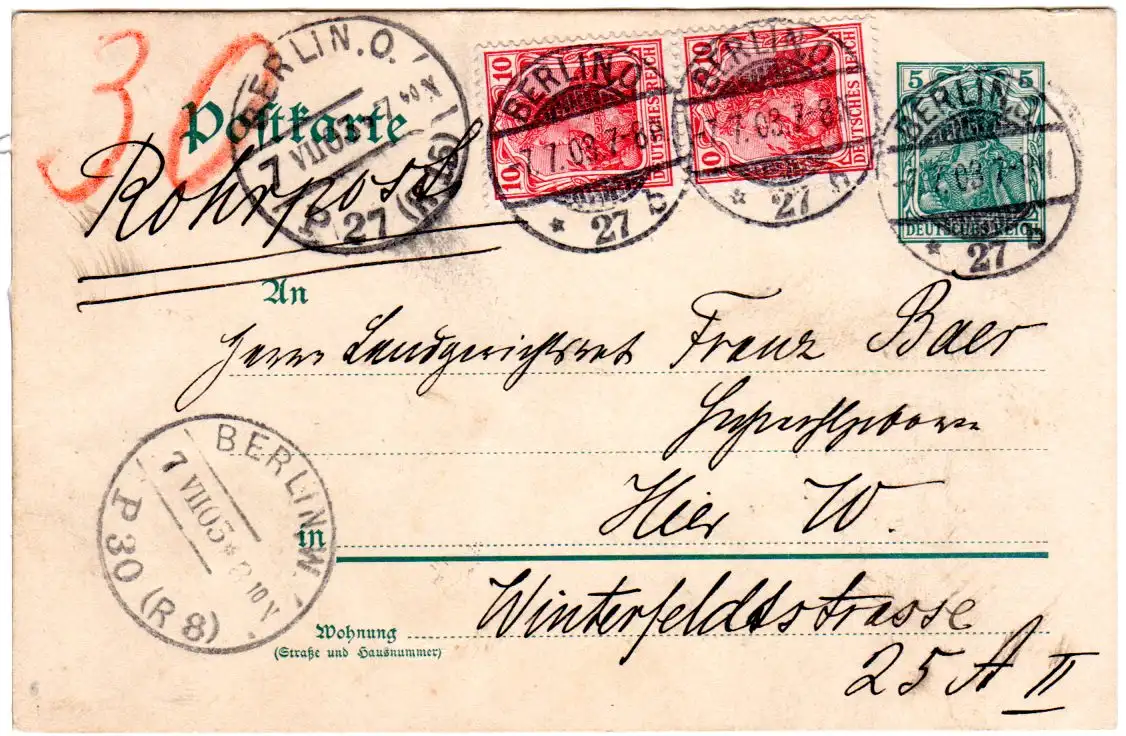 30
Postkarte
Rohrpost
BERLIN.O.
7 VII 03
P 27 (R26)
10 10
DEUTSCHES REICH
BERLIN O
7.7.03.7-8V.
* 27 b
10 10
DEUTSCHES REICH
BERLIN O
7.7.03.7-8V.
* 27
5 5
DEUTSCHES REICH
BERLIN O
7.7.03.7-8V.
* 27 b
An
Herrn Landgerichtsrat Franz Baer
Hochwohlgeboren
Hier W.
in
BERLIN.W.
7 VII 03 * 8 10 V
P 30 (R 8)
Winterfeldtstrasse
Wohnung
(Straße und Hausnummer)
25 A II